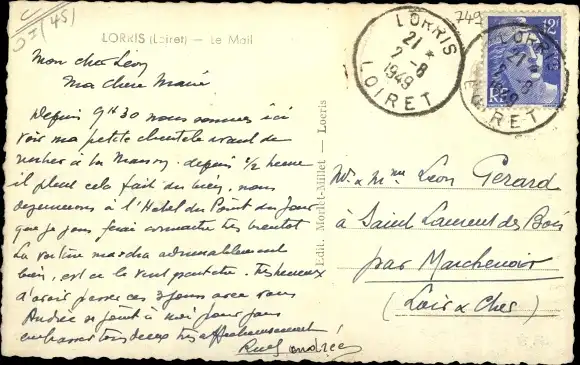 (45)
LORRIS (Loiret) — Le Mail
Mon cher Léon
Ma chère Marie
Depuis 9H30 nous sommes ici
voir ma petite clientèle avant de
rentrer à la Maison. depuis 1/2 heure
il pleut cela fait du bien, nous
déjeunerons à l'Hotel du Point du Jour
que je vous ferai connaitre très bientot
La voiture marcha admirablement
bien, est ce le vent peut etre. très heureux
d'avoir passé ces 3 jours avec vous
Andrée se joint à moi pour vous
embrasser tous deux très affectueusement
andrée
Edit. Morlet-Millet — Lorris
749
LORRIS
21 *
2-8
1949
LOIRET
12F
RF
LORRIS
21 *
2-8
1949
LOIRET
Mr & Mme Léon Gerard
a Saint Laurent des Bois
par Marchenoir
(Loir & Cher)